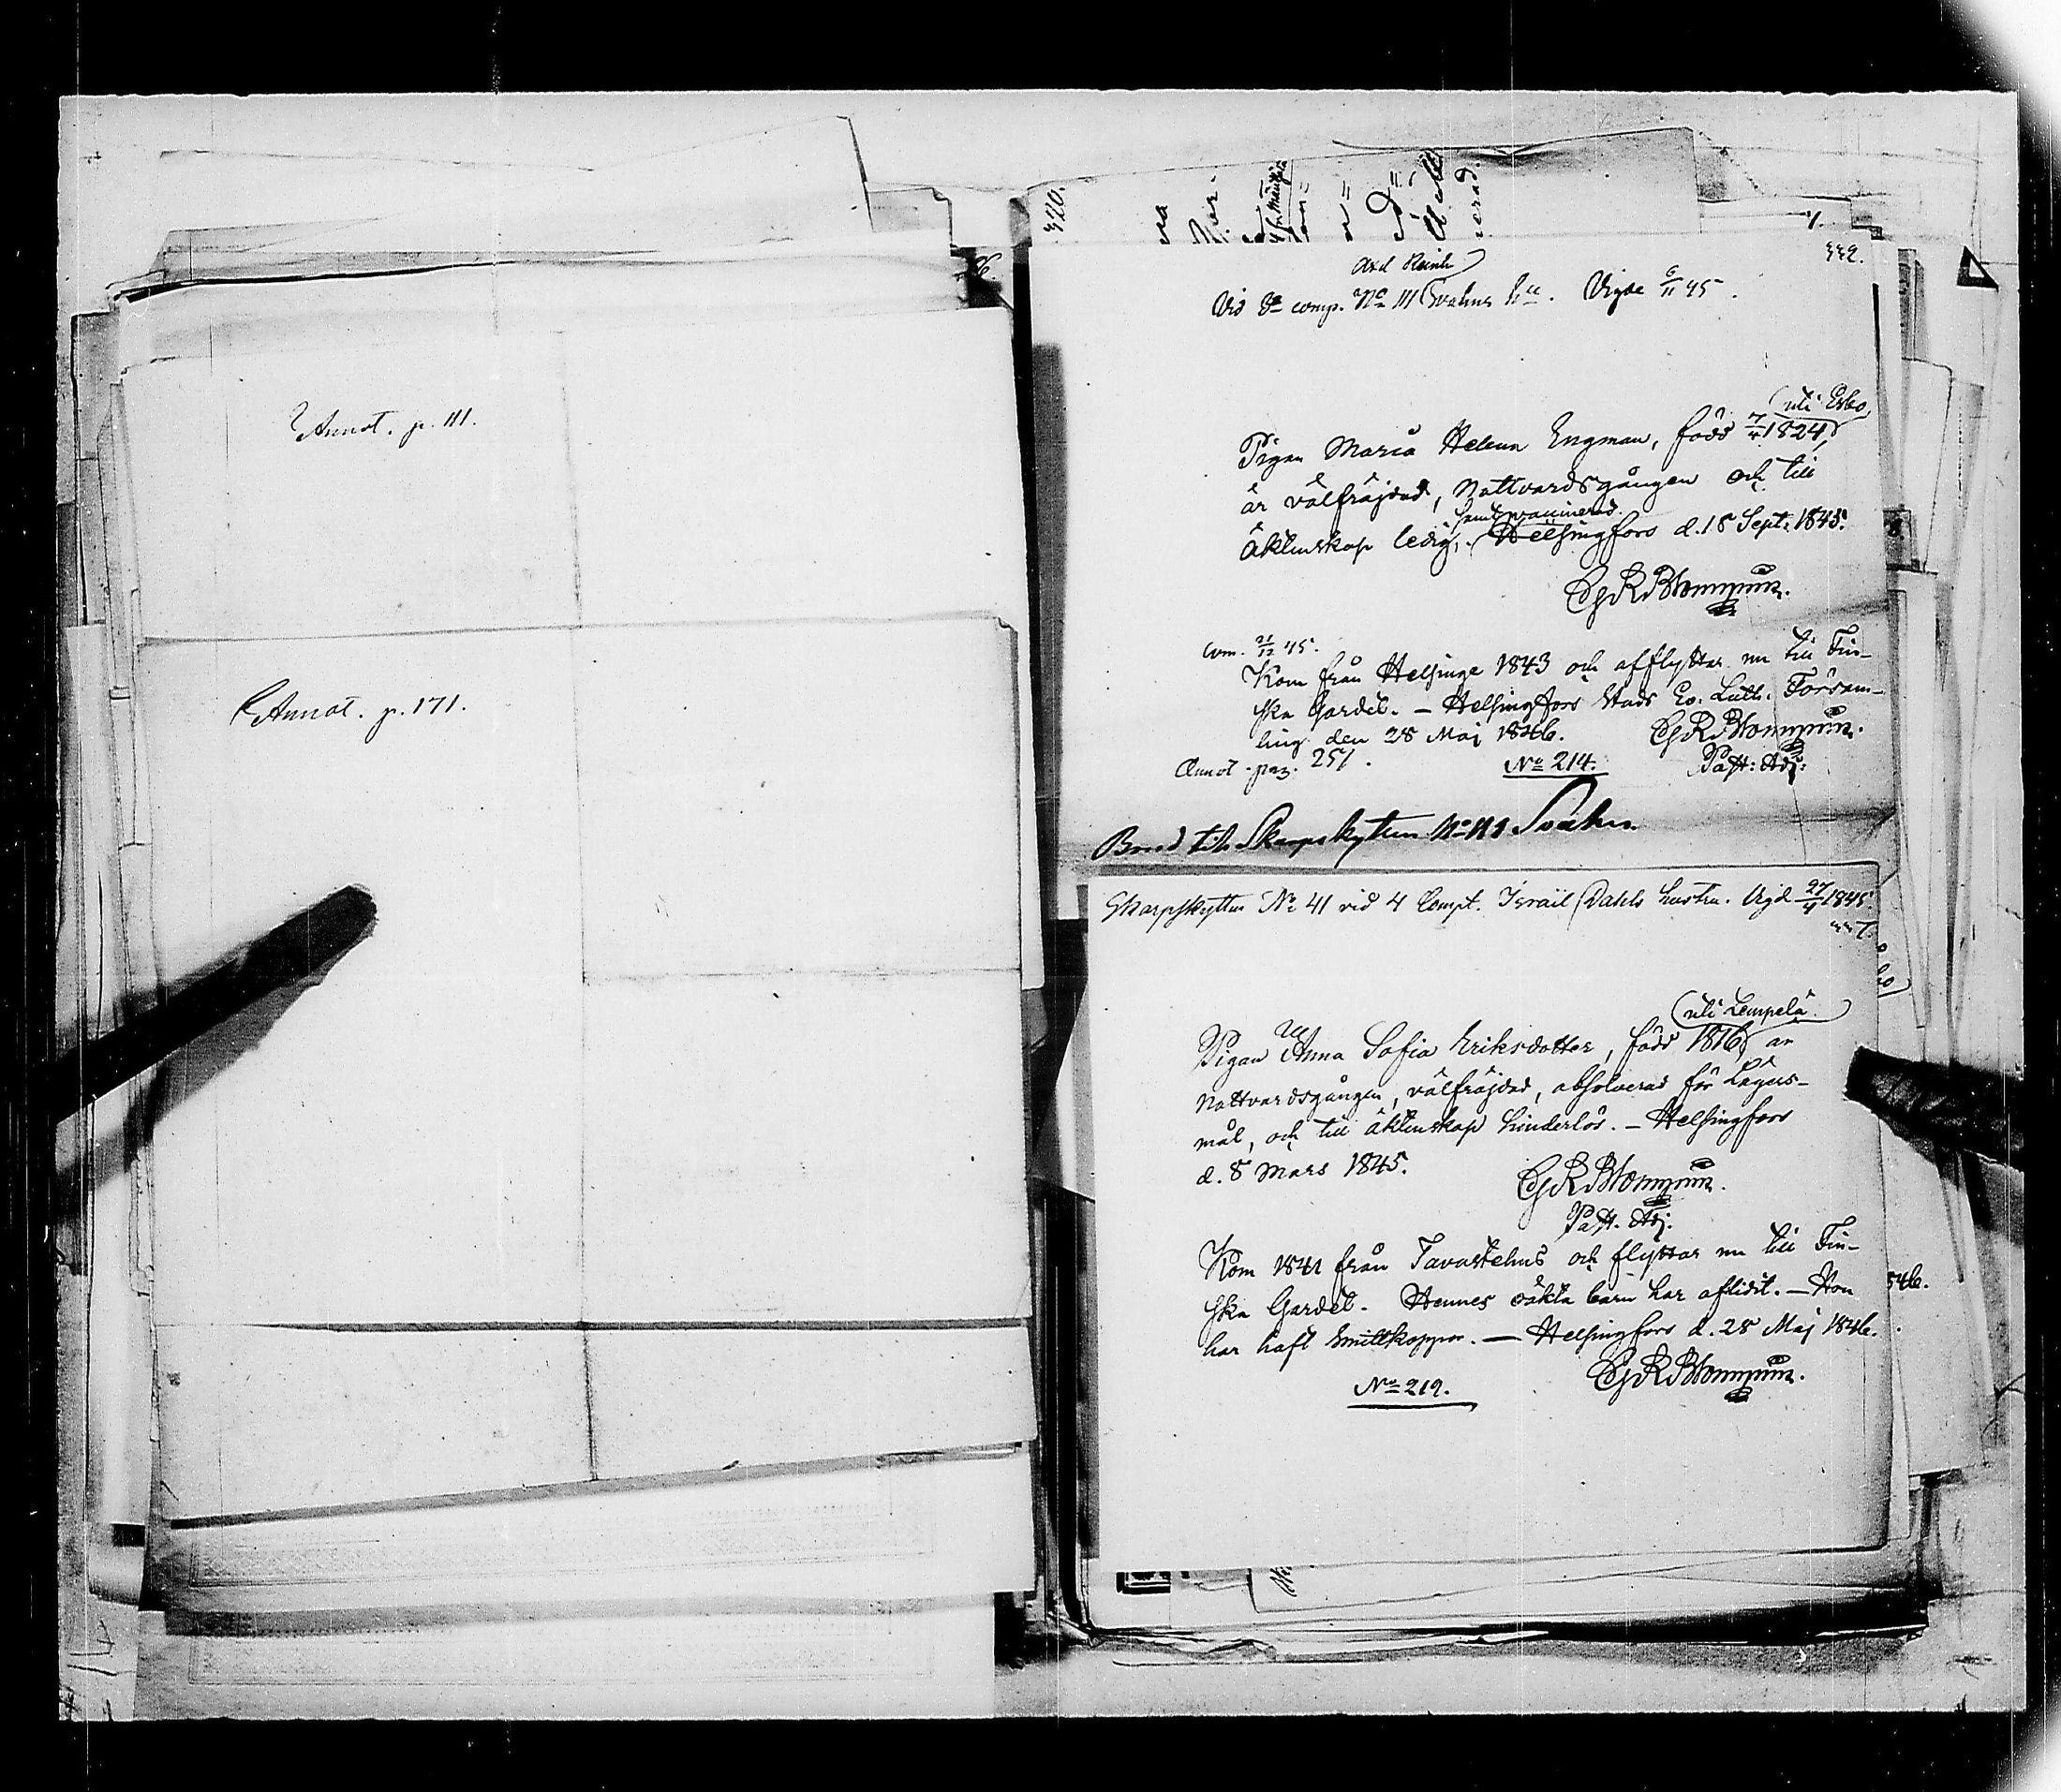 Annot. p. 111.
Annot. p. 171.
320.
1.
332.
Axel Reinh
Vid 3e comp. No 111 Svahns h u. Vigde 6/11 45.
uti Esbo
Pigan Maria Helena Engman, född 7/4 1824,
är välfräjdad, Nattvardsgången och till
samt vaccinerad.
Äktenskap ledig. Helsingfors d. 18 Sept. 1845.
CGRBlommqvist.
Com. 21/12 45.
Kom från Helsinge 1843 och afflyttar nu till Fin-
ska Gardet. — Helsingfors Stads Ev. Luth. Försam-
ling den 28 Maj 1846. CGRBlommqvist.
Annot. pag. 251. No 214. Past: Adj:
till Skarpskytten No 111 Svahn.
Skarpskytten No 41 vid 4 Compt. Israil Dahls hustru. Vigd 27/4 1845.
337.
uti Lempelä
Pigan Anna Sofia Eriksdotter, född 1816, är
Nattvardsgången, välfräjdad, absolverad för Lägers-
mål, och till äktenskap hinderlös. — Helsingfors
d. 8 Mars 1845. CGRBlommqvist.
Past. Adj:
Kom 1841 från Tavastehus och flyttar nu till Fin-
ska Gardet. Hennes oäkta barn har aflidit. — Hon
har haft Smittkoppor. — Helsingfors d. 28 Maj 1846.
CGRBlommqvist.
No 219.